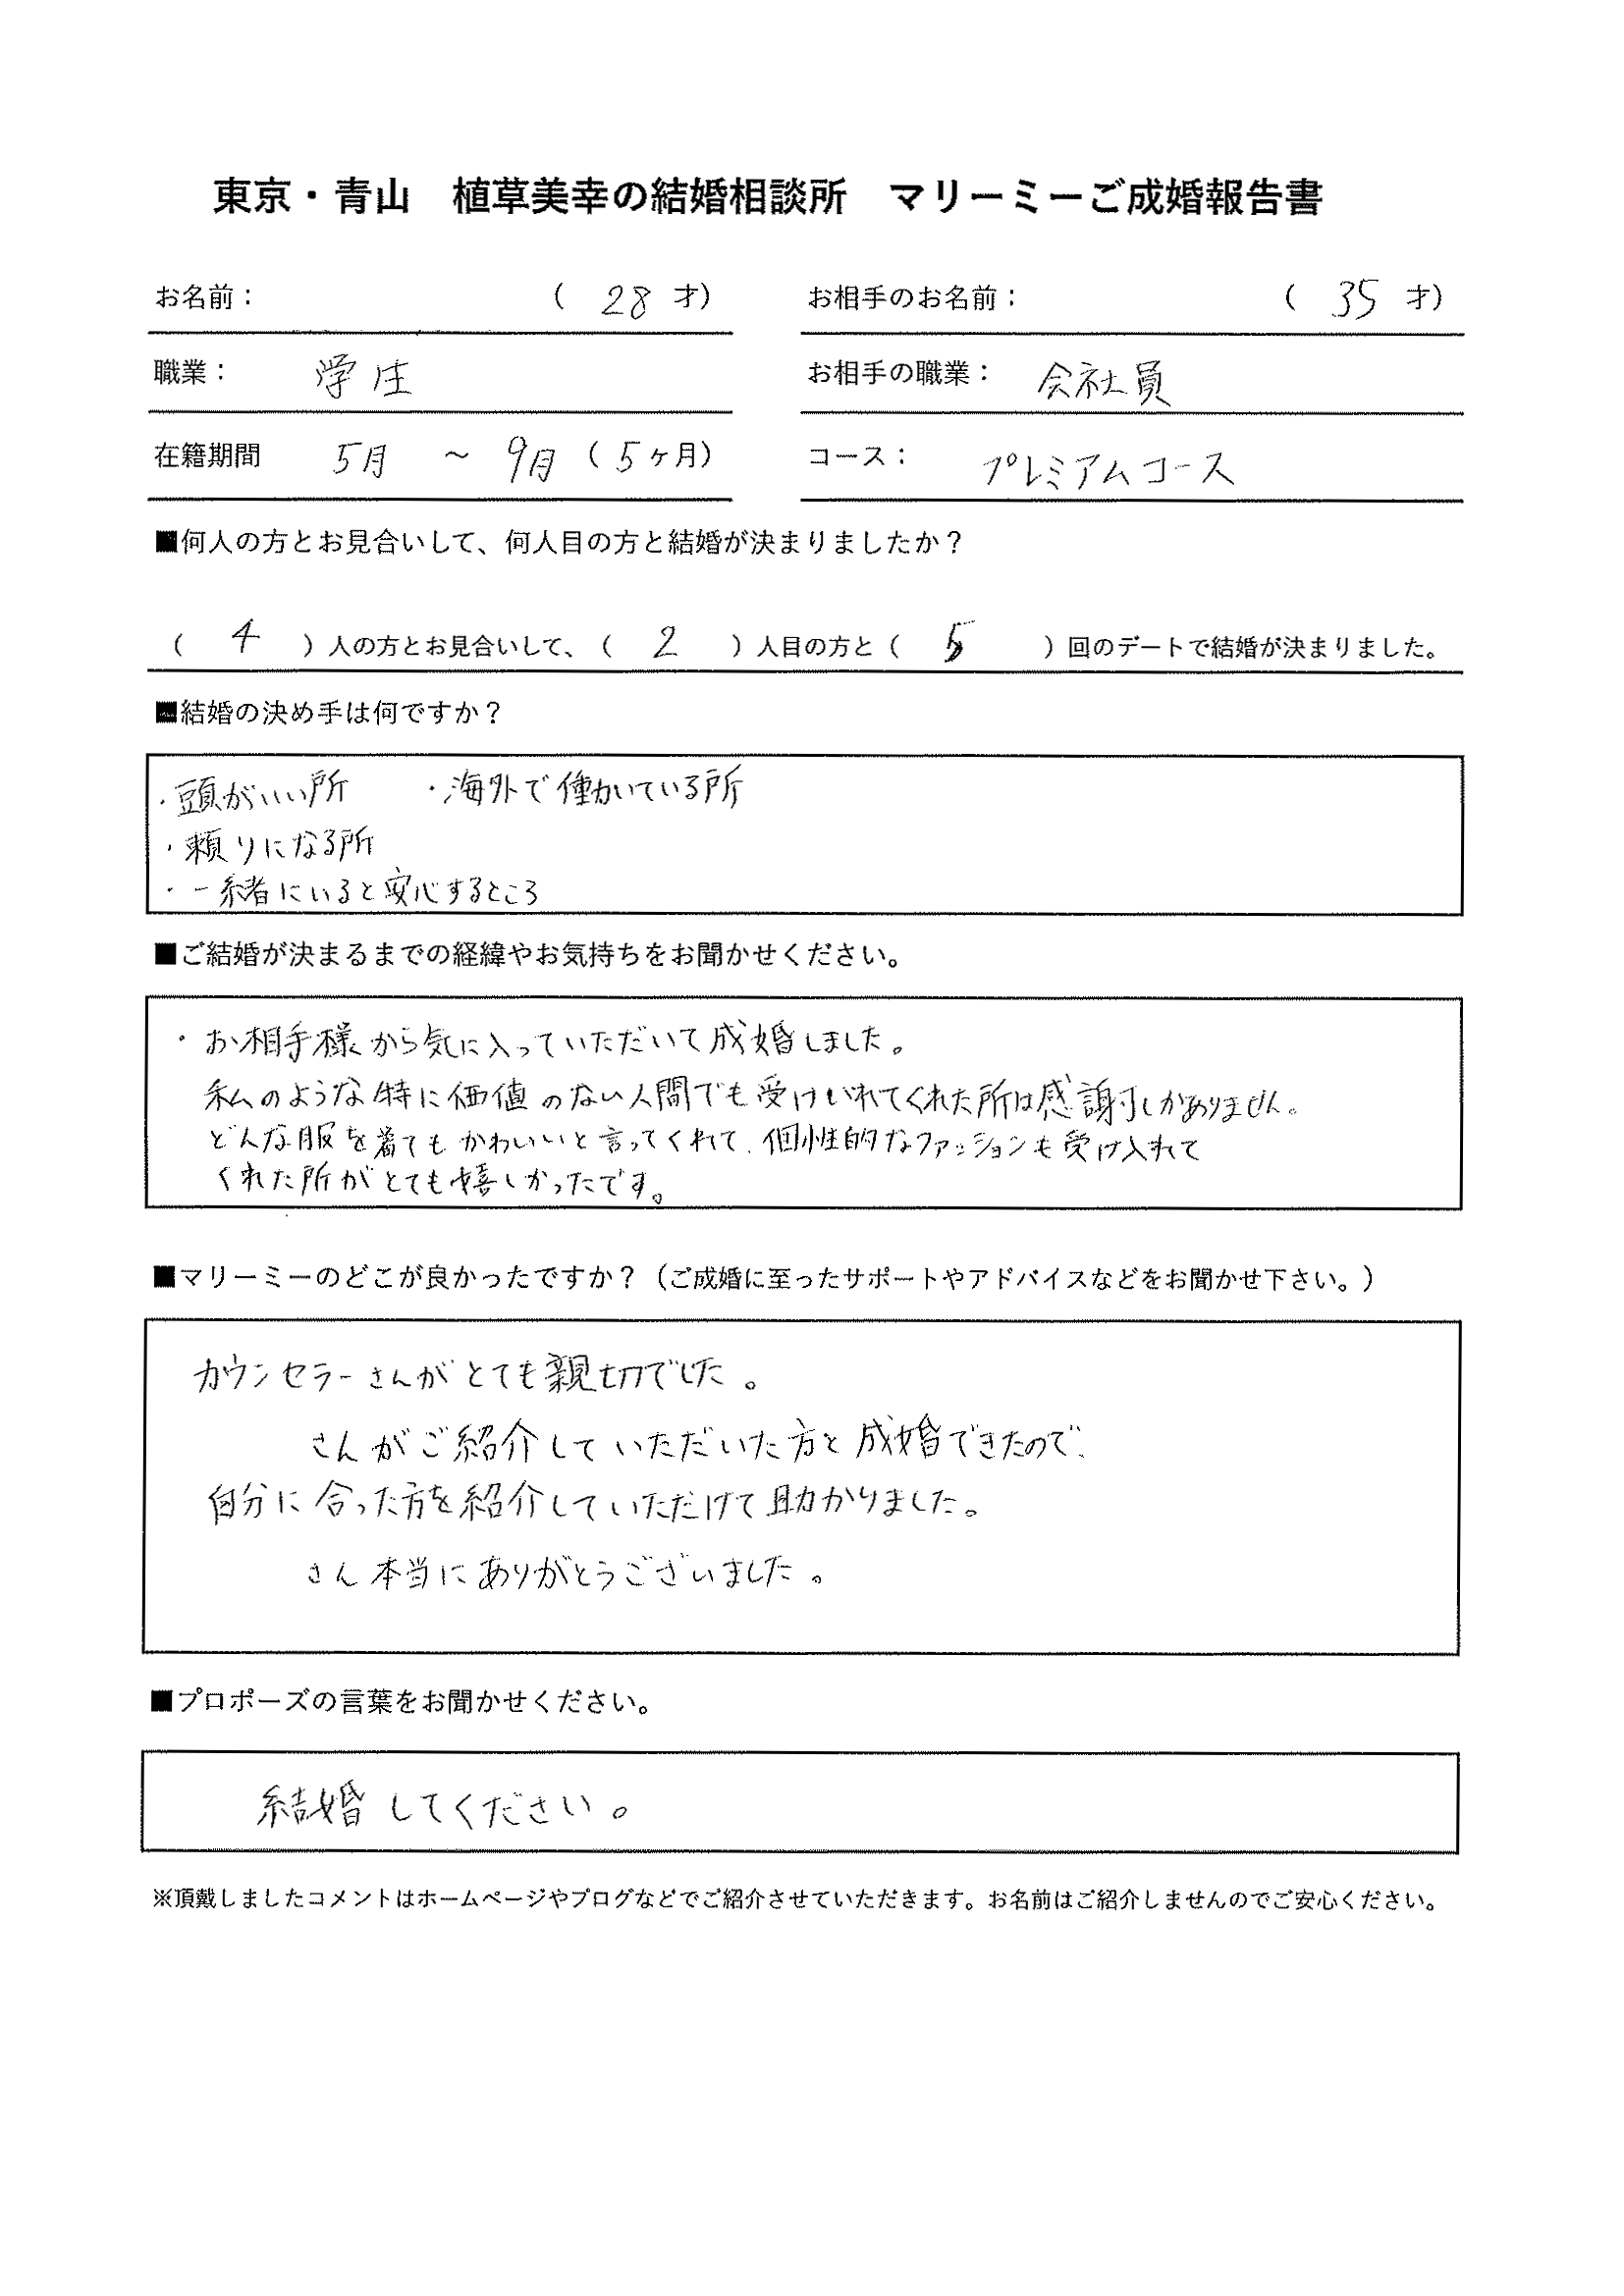 東京・青山　植草美幸の結婚相談所　マリーミーご成婚報告書
お名前：　（ 28 才）　お相手のお名前：　（ 35 才）
職業：　学生　お相手の職業：　会社員
在籍期間　5月 ～ 9月（5ヶ月）　コース：　プレミアムコース
■何人の方とお見合いして、何人目の方と結婚が決まりましたか？
（ 4 ）人の方とお見合いして、（ 2 ）人目の方と（ 5 ）回のデートで結婚が決まりました。
■結婚の決め手は何ですか？
・頭がいい所　・海外で働いている所
・頼りになる所
・一緒にいると安心するところ
■ご結婚が決まるまでの経緯やお気持ちをお聞かせください。
・お相手様から気に入っていただいて成婚しました。
私のような特に価値のない人間でも受けいれてくれた所は感謝しかありません。
どんな服を着てもかわいいと言ってくれて、個性的なファッションも受け入れて
くれた所がとても嬉しかったです。
■マリーミーのどこが良かったですか？（ご成婚に至ったサポートやアドバイスなどをお聞かせ下さい。）
カウンセラーさんがとても親切でした。
さんがご紹介していただいた方と成婚できたので、
自分に合った方を紹介していただけて助かりました。
さん本当にありがとうございました。
■プロポーズの言葉をお聞かせください。
結婚してください。
※頂戴しましたコメントはホームページやブログなどでご紹介させていただきます。お名前はご紹介しませんのでご安心ください。